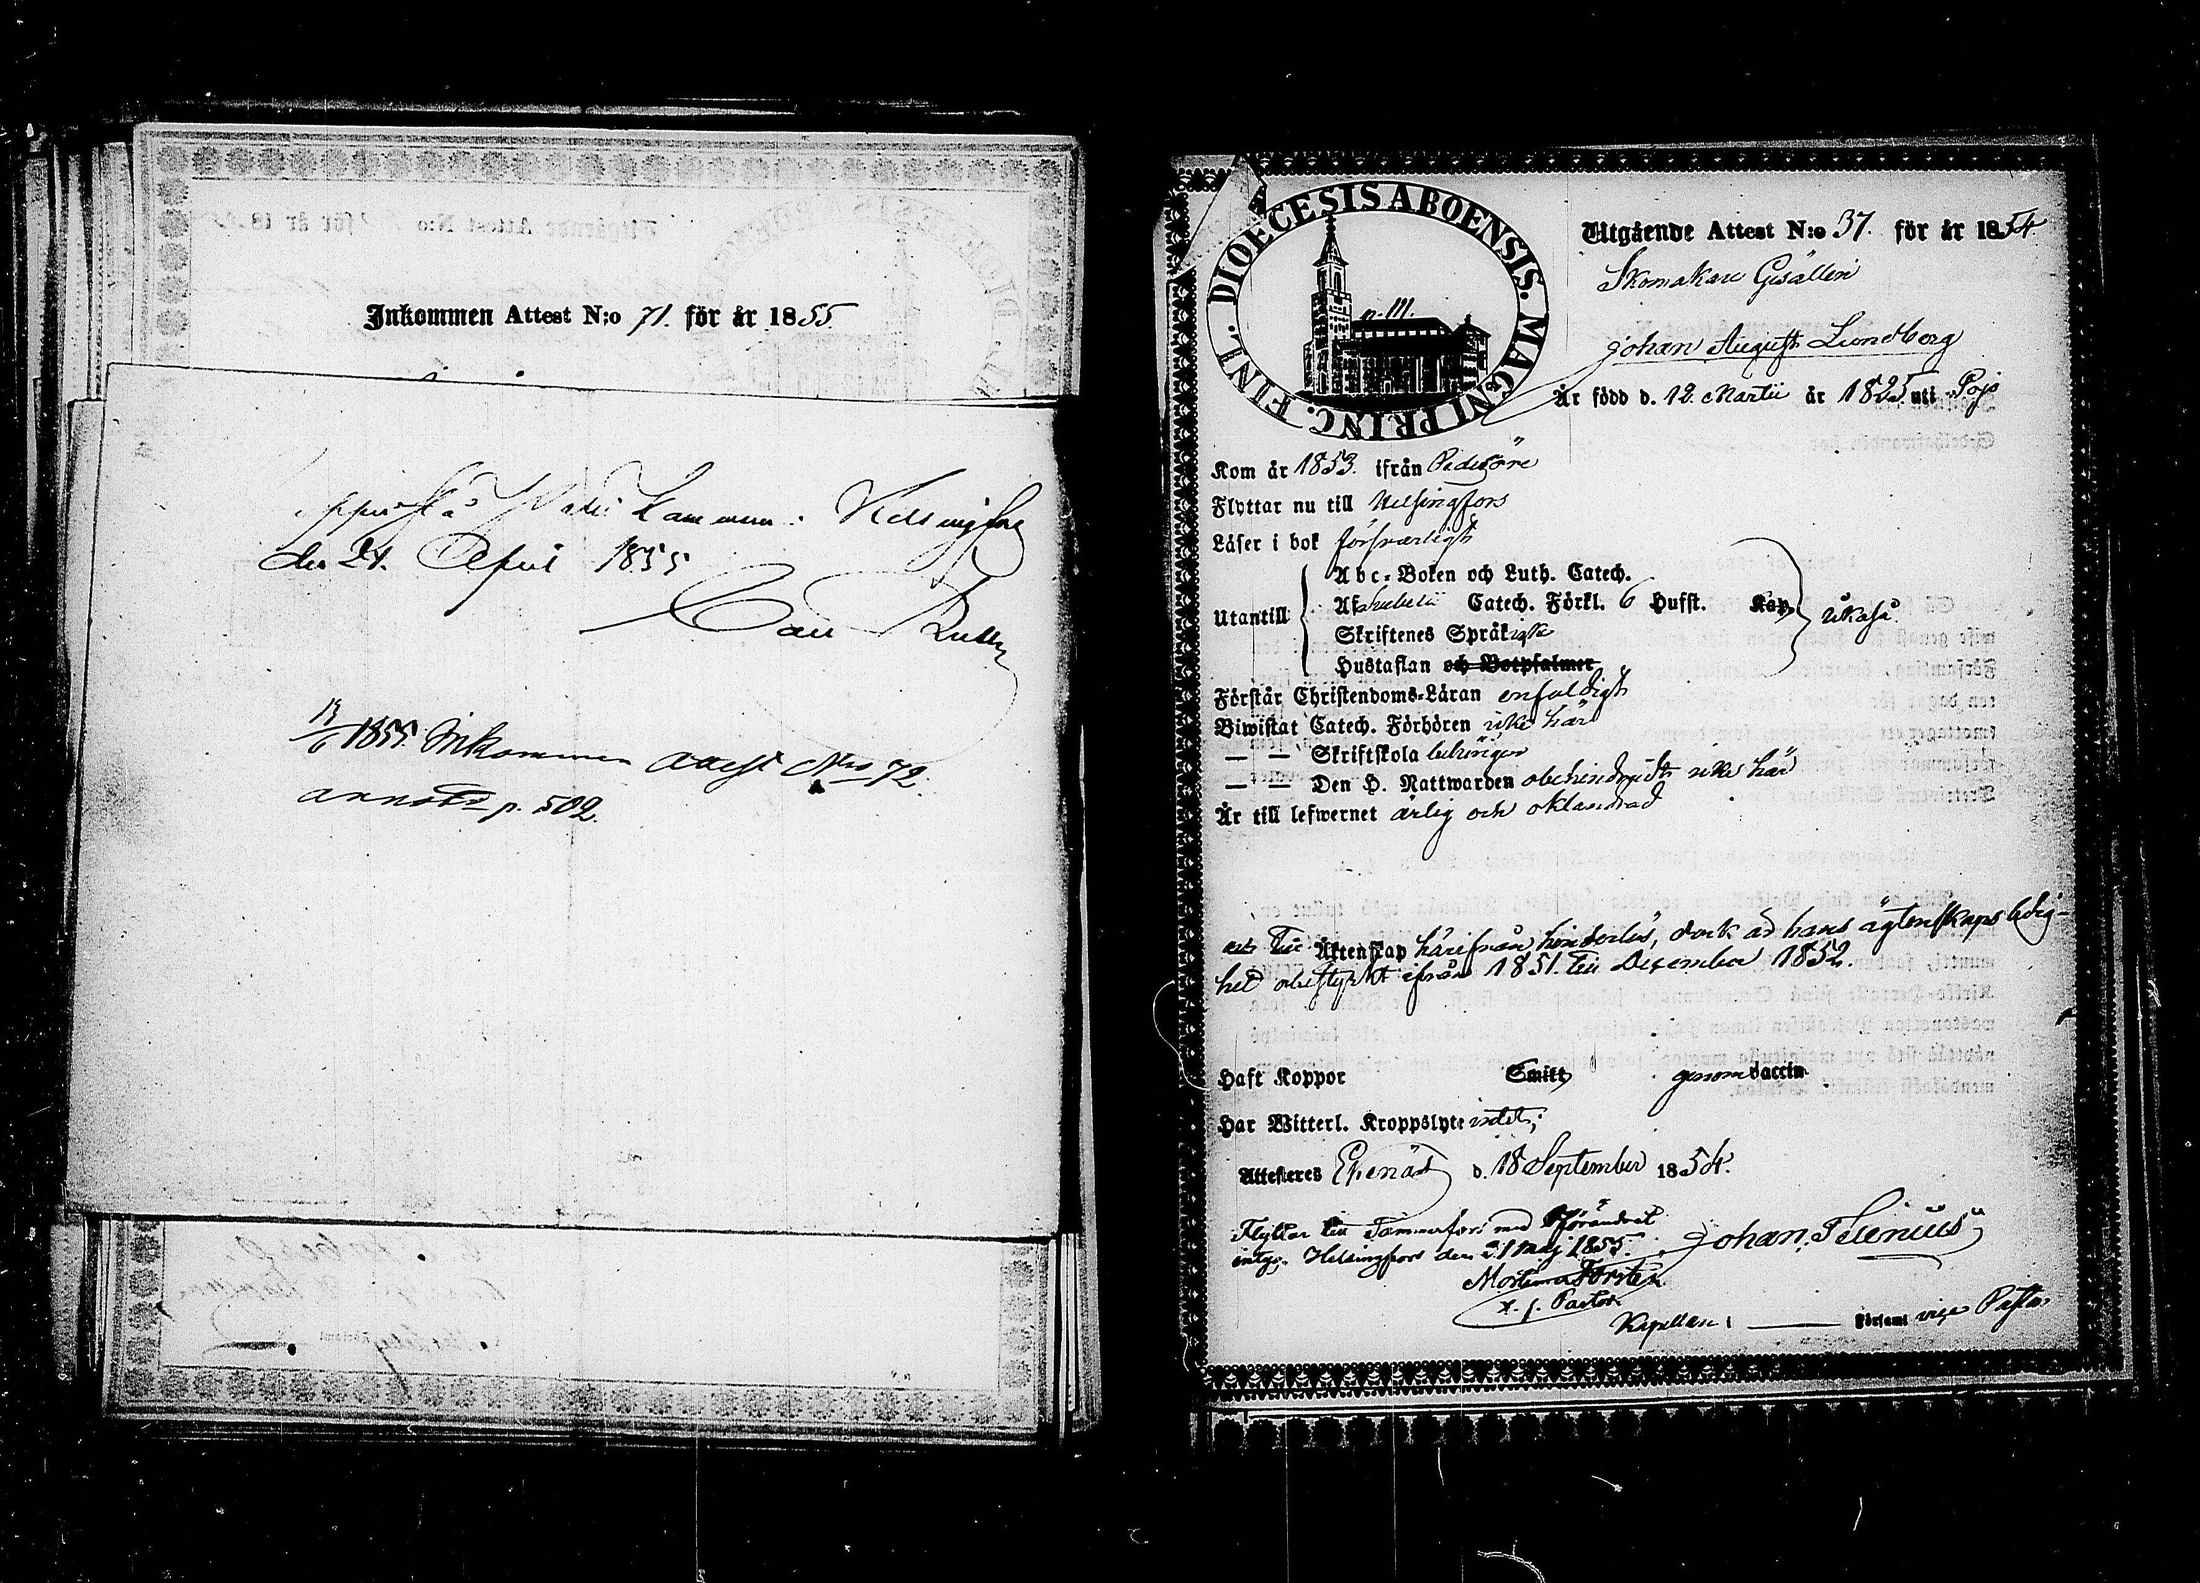 Inkommen Attest N:o 71. för år 1855.
Helsingfors
den 24. April 1855
Carl
13/6 1855. Inkommen attest No 72.
annoterad p. 502.
DIOECESIS ABOENSIS. MAGNI PRINC. FINL.
p. 111.
Utgående Attest N:o 37. för år 1854.
Skomakare Gesällen
Johan August Lundberg
Är född d. 12. Martii år 1825 uti Pojo
Kom år 1853. ifrån Pedersöre
Flyttar nu till Helsingfors
Läser i bok försvarligt
Utantill
Abc-Boken och Luth. Catech.
Af Svebelii Catech. Förkl. 6 Hufst. Kap. likaså.
Skriftenes Språk icke
Hustaflan och Botpsalmer
Förstår Christendoms-Läran enfaldigt
Biwistat Catech. Förhören icke här
— — Skriftskola behörigen
— — Den H. Nattwarden obehindradt icke här
Är till lefwernet ärlig och oklandrad
Till Äktenskap härifrån hinderlös, dock är hans ägtenskapsledig-
het obestyrkt ifrån 1851. till December 1852.
Haft Koppor Smitt genom vaccin
Har Witterl. Kroppslyte intet;
Attesteras Ekenäs d. 18 September 1854.
Flyttar till Tammerfors med oförändrat
intyg. Helsingfors den 31 Maj 1855.
Johan
Mortimer Forstén
v. f. Pastor
Kapellan i — Församl vice Pastor